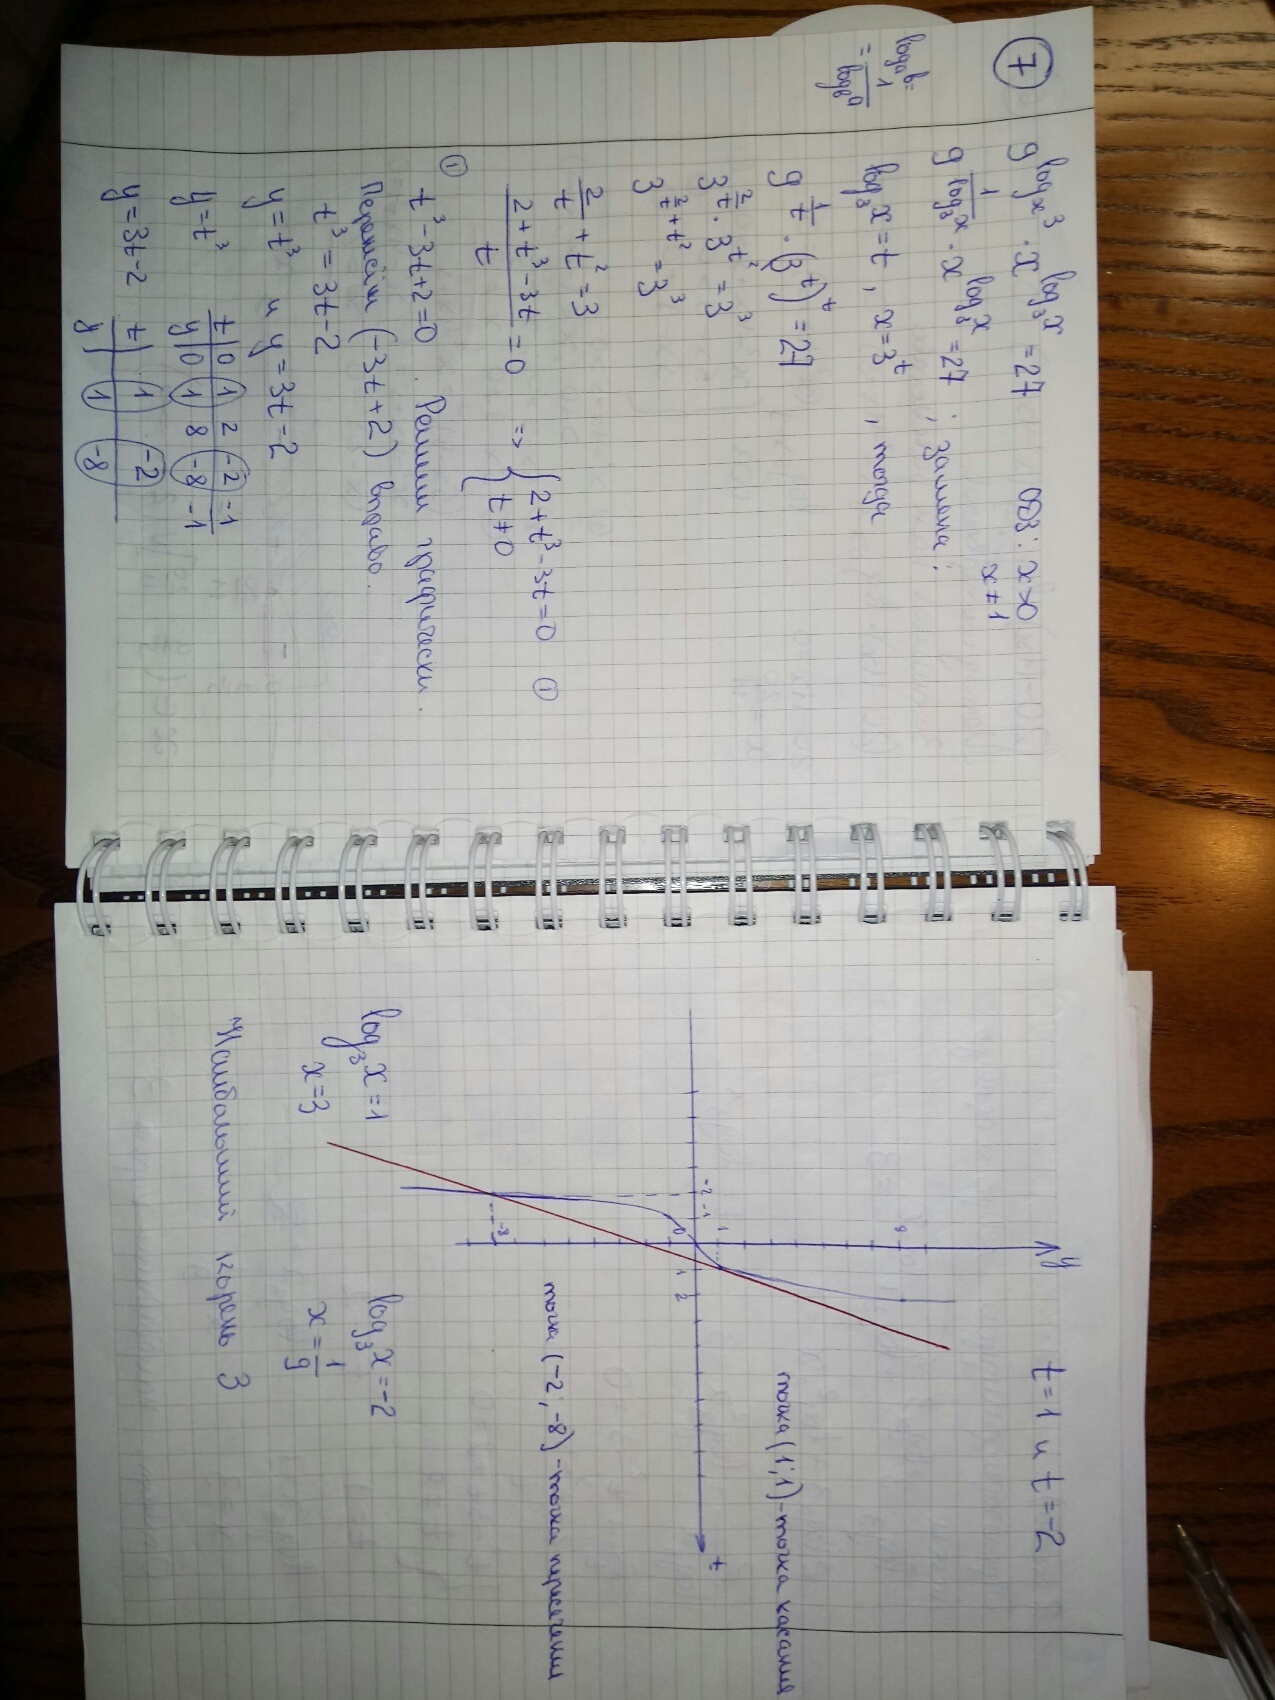 7
9^{log_x 3} · x^{log_3 x} = 27 ОДЗ: x>0
x≠1
log_a b = 1/log_b a
9^{1/log_3 x} · x^{log_3 x} = 27 ; замена:
log_3 x = t , x = 3^t , тогда
9^{1/t} · (3^t)^t = 27
3^{2/t} · 3^{t^2} = 3^3
3^{2/t + t^2} = 3^3
2/t + t^2 = 3
(2 + t^3 - 3t)/t = 0 => { 2 + t^3 - 3t = 0 ①
{ t ≠ 0
① t^3 - 3t + 2 = 0 . Решим графически.
Перенесём (-3t+2) вправо.
t^3 = 3t - 2
y = t^3 и y = 3t - 2
y = t^3
t | 0 | 1 | 2 | -2 | -1
y | 0 | 1 | 8 | -8 | -1
y = 3t - 2
t | 1 | -2
y | 1 | -8
t = 1 и t = -2
y
8
1
-2 -1 0 1 2
t
-8
точка (1;1) - точка касания
точка (-2;-8) - точка пересечения
log_3 x = 1 log_3 x = -2
x = 3 x = 1/9
Наибольший корень 3